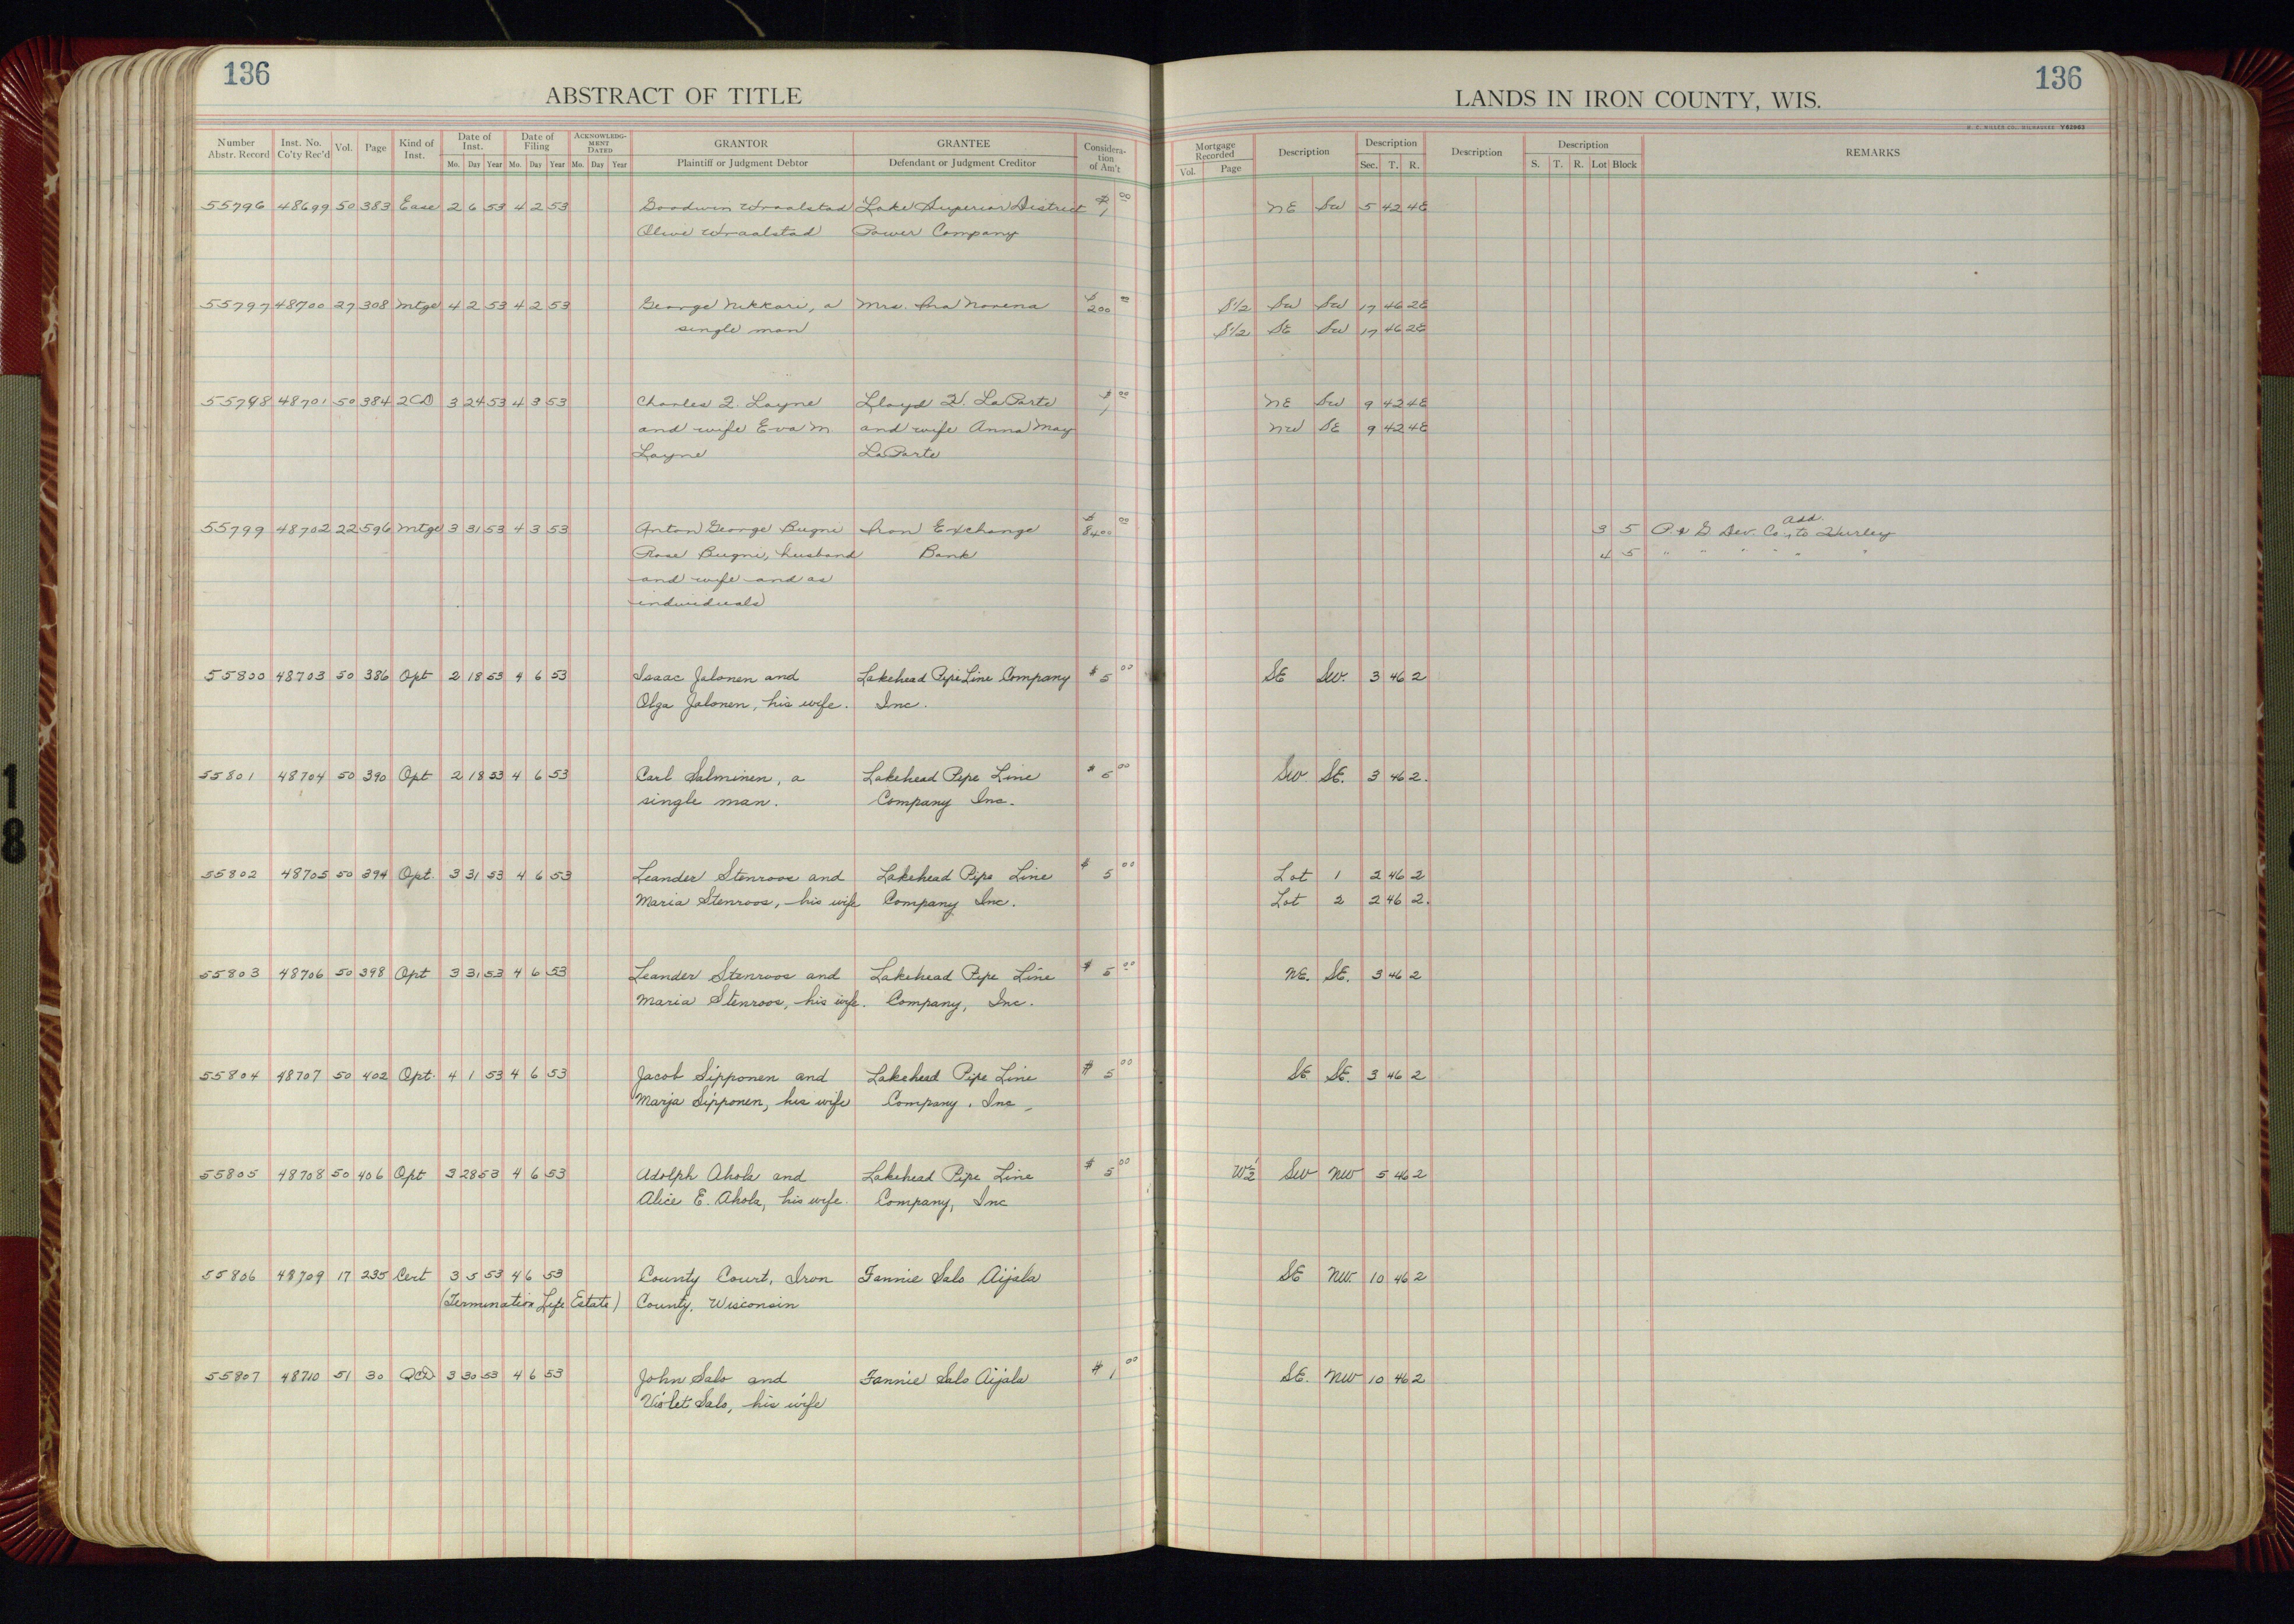 136
ABSTRACT OF TITLE
Number Abstr. Record | Inst. No. Co'ty Rec'd | Vol. | Page | Kind of Inst. | Date of Inst. Mo. Day Year | Date of Filing Mo. Day Year | ACKNOWLEDGMENT DATED Mo. Day Year | GRANTOR Plaintiff or Judgment Debtor | GRANTEE Defendant or Judgment Creditor | Consideration of Am't
136
LANDS IN IRON COUNTY, WIS.
H. C. MILLER CO., MILWAUKEE Y82963
Mortgage Recorded Vol. Page | Description | Description Sec. T. R. | Description | Description S. T. R. Lot Block | REMARKS
55796 48699 50 383 Ease 2 6 53 4 2 53 Goodwin Lake Superior District $1 00 NE SW 5 42 4E
Olive Power Company
55797 48700 27 308 Mtge 4 2 53 4 2 53 George Nikkari, a Mrs. Ina Norena $200 00 S1/2 SW SW 17 46 2E
single man S1/2 SE SW 17 46 2E
55798 48701 50 384 2CD 3 24 53 4 3 53 Charles Z. Layne Lloyd V. LaPorte $1 00 NE SW 9 42 4E
and wife Eva M. and wife Anna May NW SE 9 42 4E
Layne LaPorte
55799 48702 22 596 Mtge 3 31 53 4 3 53 Anton George Bugni Iron Exchange $8400 00 3 5 P. & G Dev. Co., Add. to Hurley
Rose Bugni, husband Bank 4 5 " " " " " "
and wife and as
individuals
55800 48703 50 386 Opt 2 18 53 4 6 53 Isaac Jalonen and Lakehead Pipe Line Company $5 00 SE SW. 3 46 2
Olga Jalonen, his wife. Inc.
55801 48704 50 390 Opt 2 18 53 4 6 53 Carl Salminen, a Lakehead Pipe Line $5 00 SW SE. 3 46 2.
single man. Company Inc.
55802 48705 50 394 Opt. 3 31 53 4 6 53 Leander Stenroos and Lakehead Pipe Line $5 00 Lot 1 2 46 2
Maria Stenroos, his wife Company Inc. Lot 2 2 46 2.
55803 48706 50 398 Opt 3 31 53 4 6 53 Leander Stenroos and Lakehead Pipe Line $5 00 NE. SE. 3 46 2
Maria Stenroos, his wife. Company, Inc.
55804 48707 50 402 Opt. 4 1 53 4 6 53 Jacob Sipponen and Lakehead Pipe Line $5 00 SE SE. 3 46 2
Marja Sipponen, his wife Company, Inc.
55805 48708 50 406 Opt 3 28 53 4 6 53 Adolph Ahola and Lakehead Pipe Line $5 00 W1/2 SW NW 5 46 2
Alice E. Ahola, his wife. Company, Inc
55806 48709 17 235 Cert 3 5 53 4 6 53 County Court, Iron Fannie Salo Aijala SE NW. 10 46 2
(Termination Life Estate) County, Wisconsin
55807 48710 51 30 QCD 3 30 53 4 6 53 John Salo and Fannie Salo Aijala $1 00 SE. NW 10 46 2
Violet Salo, his wife
18